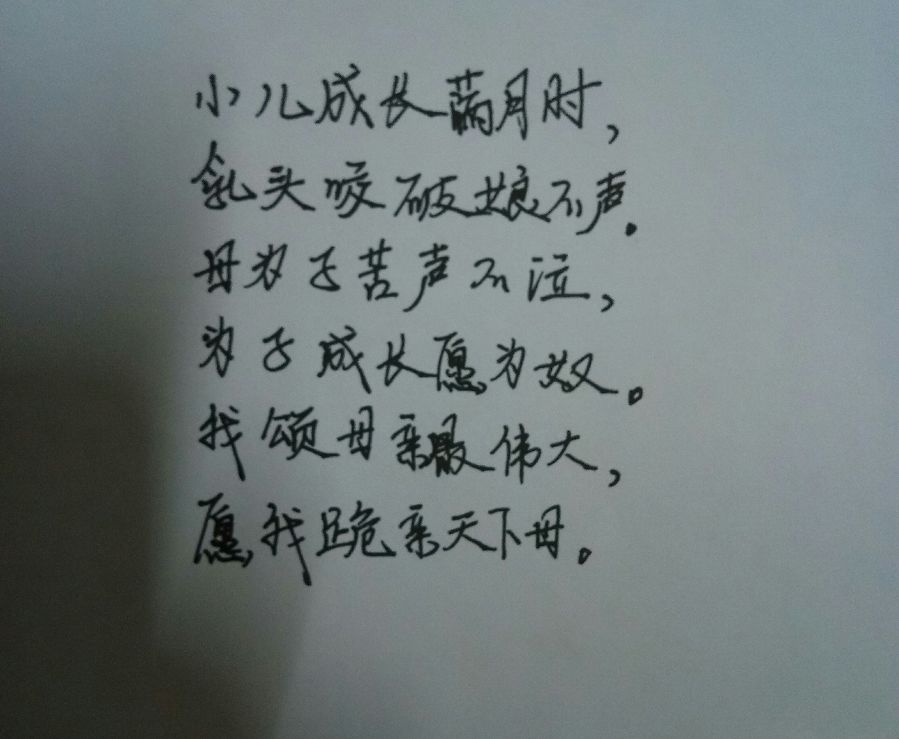 小儿成长满月时，
乳头咬破娘不声。
母为子苦声不泣，
为子成长愿为奴。
我颂母亲最伟大，
愿我跪亲天下母。